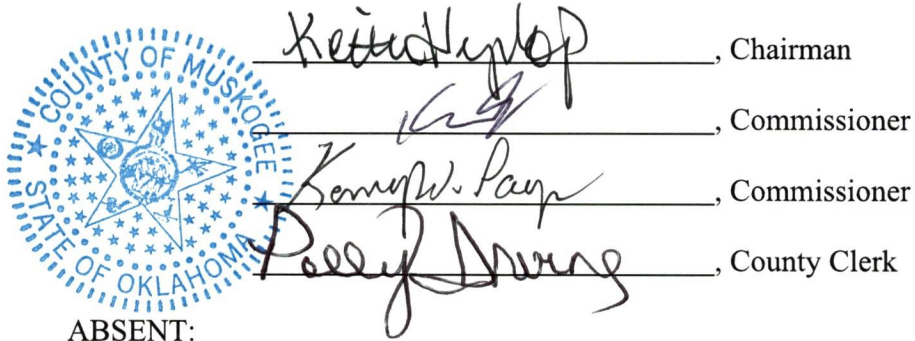 COUNTY OF MUSKOGEE
STATE OF OKLAHOMA
, Chairman
, Commissioner
Kenny W. Payne, Commissioner
Polly Irving, County Clerk
ABSENT: